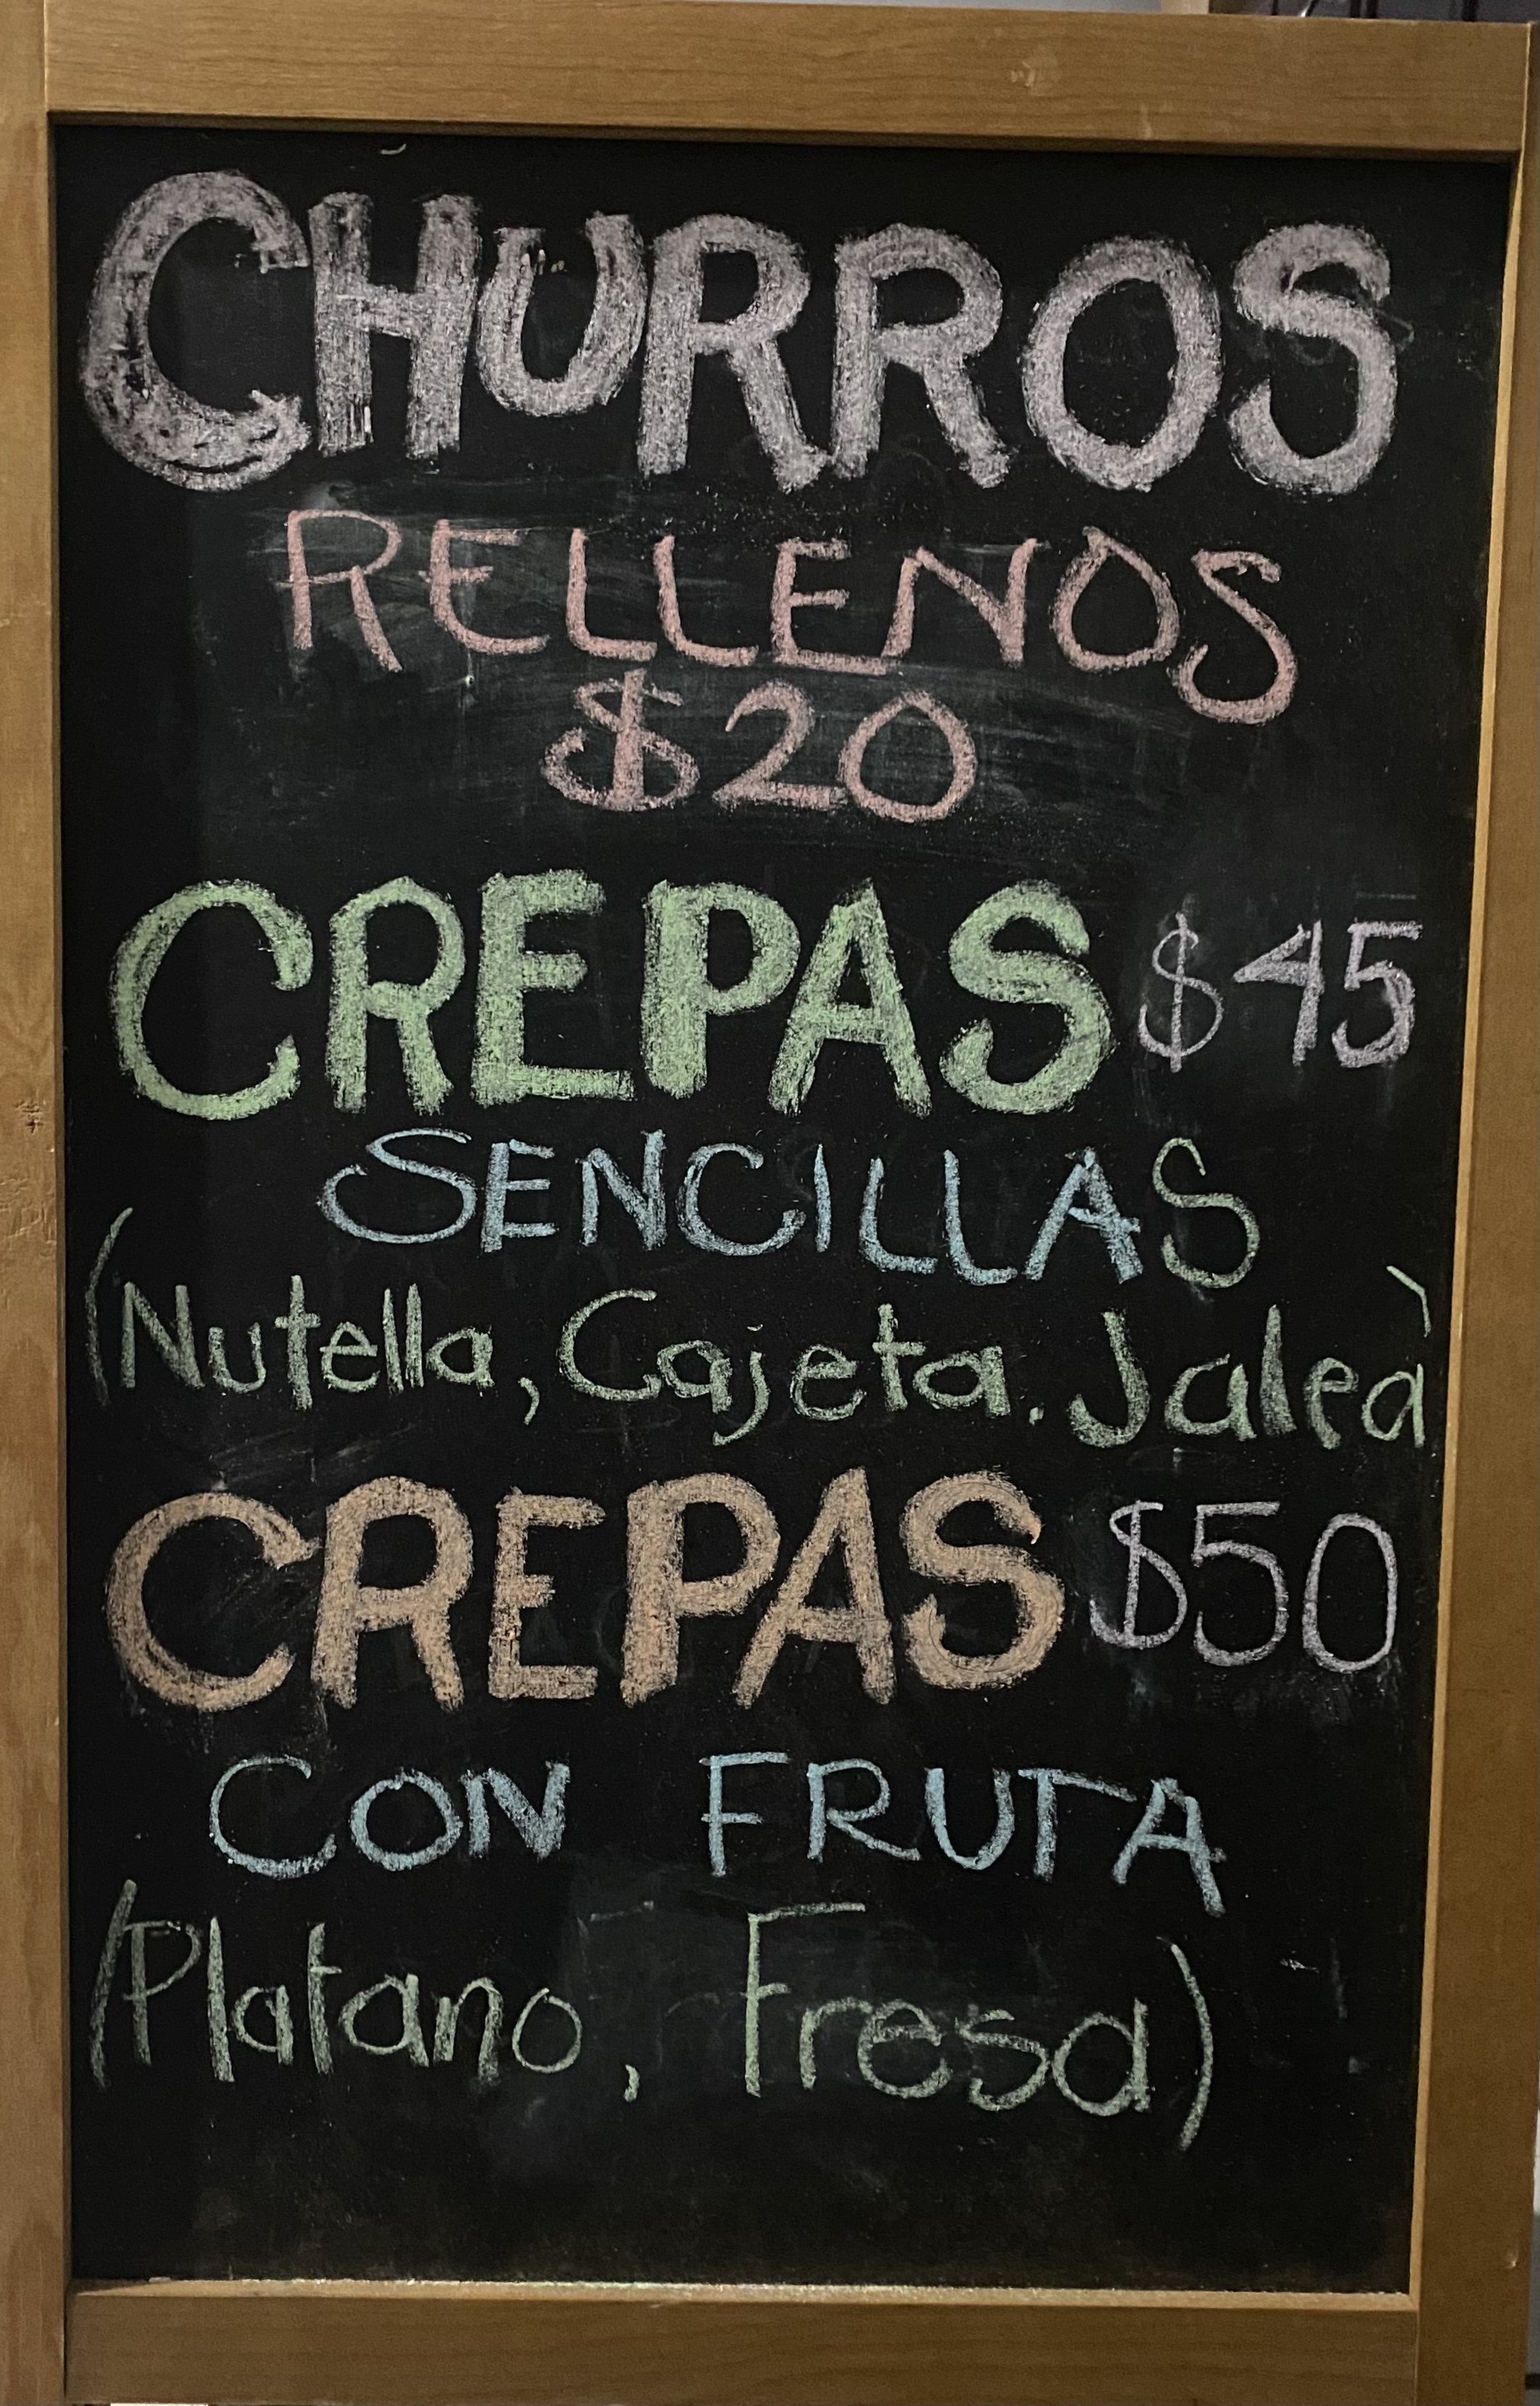 CHURROS
RELLENOS
$20
CREPAS $45
SENCILLAS
(Nutella, Cajeta. Jalea)
CREPAS $50
CON FRUTA
(Platano, Fresa)